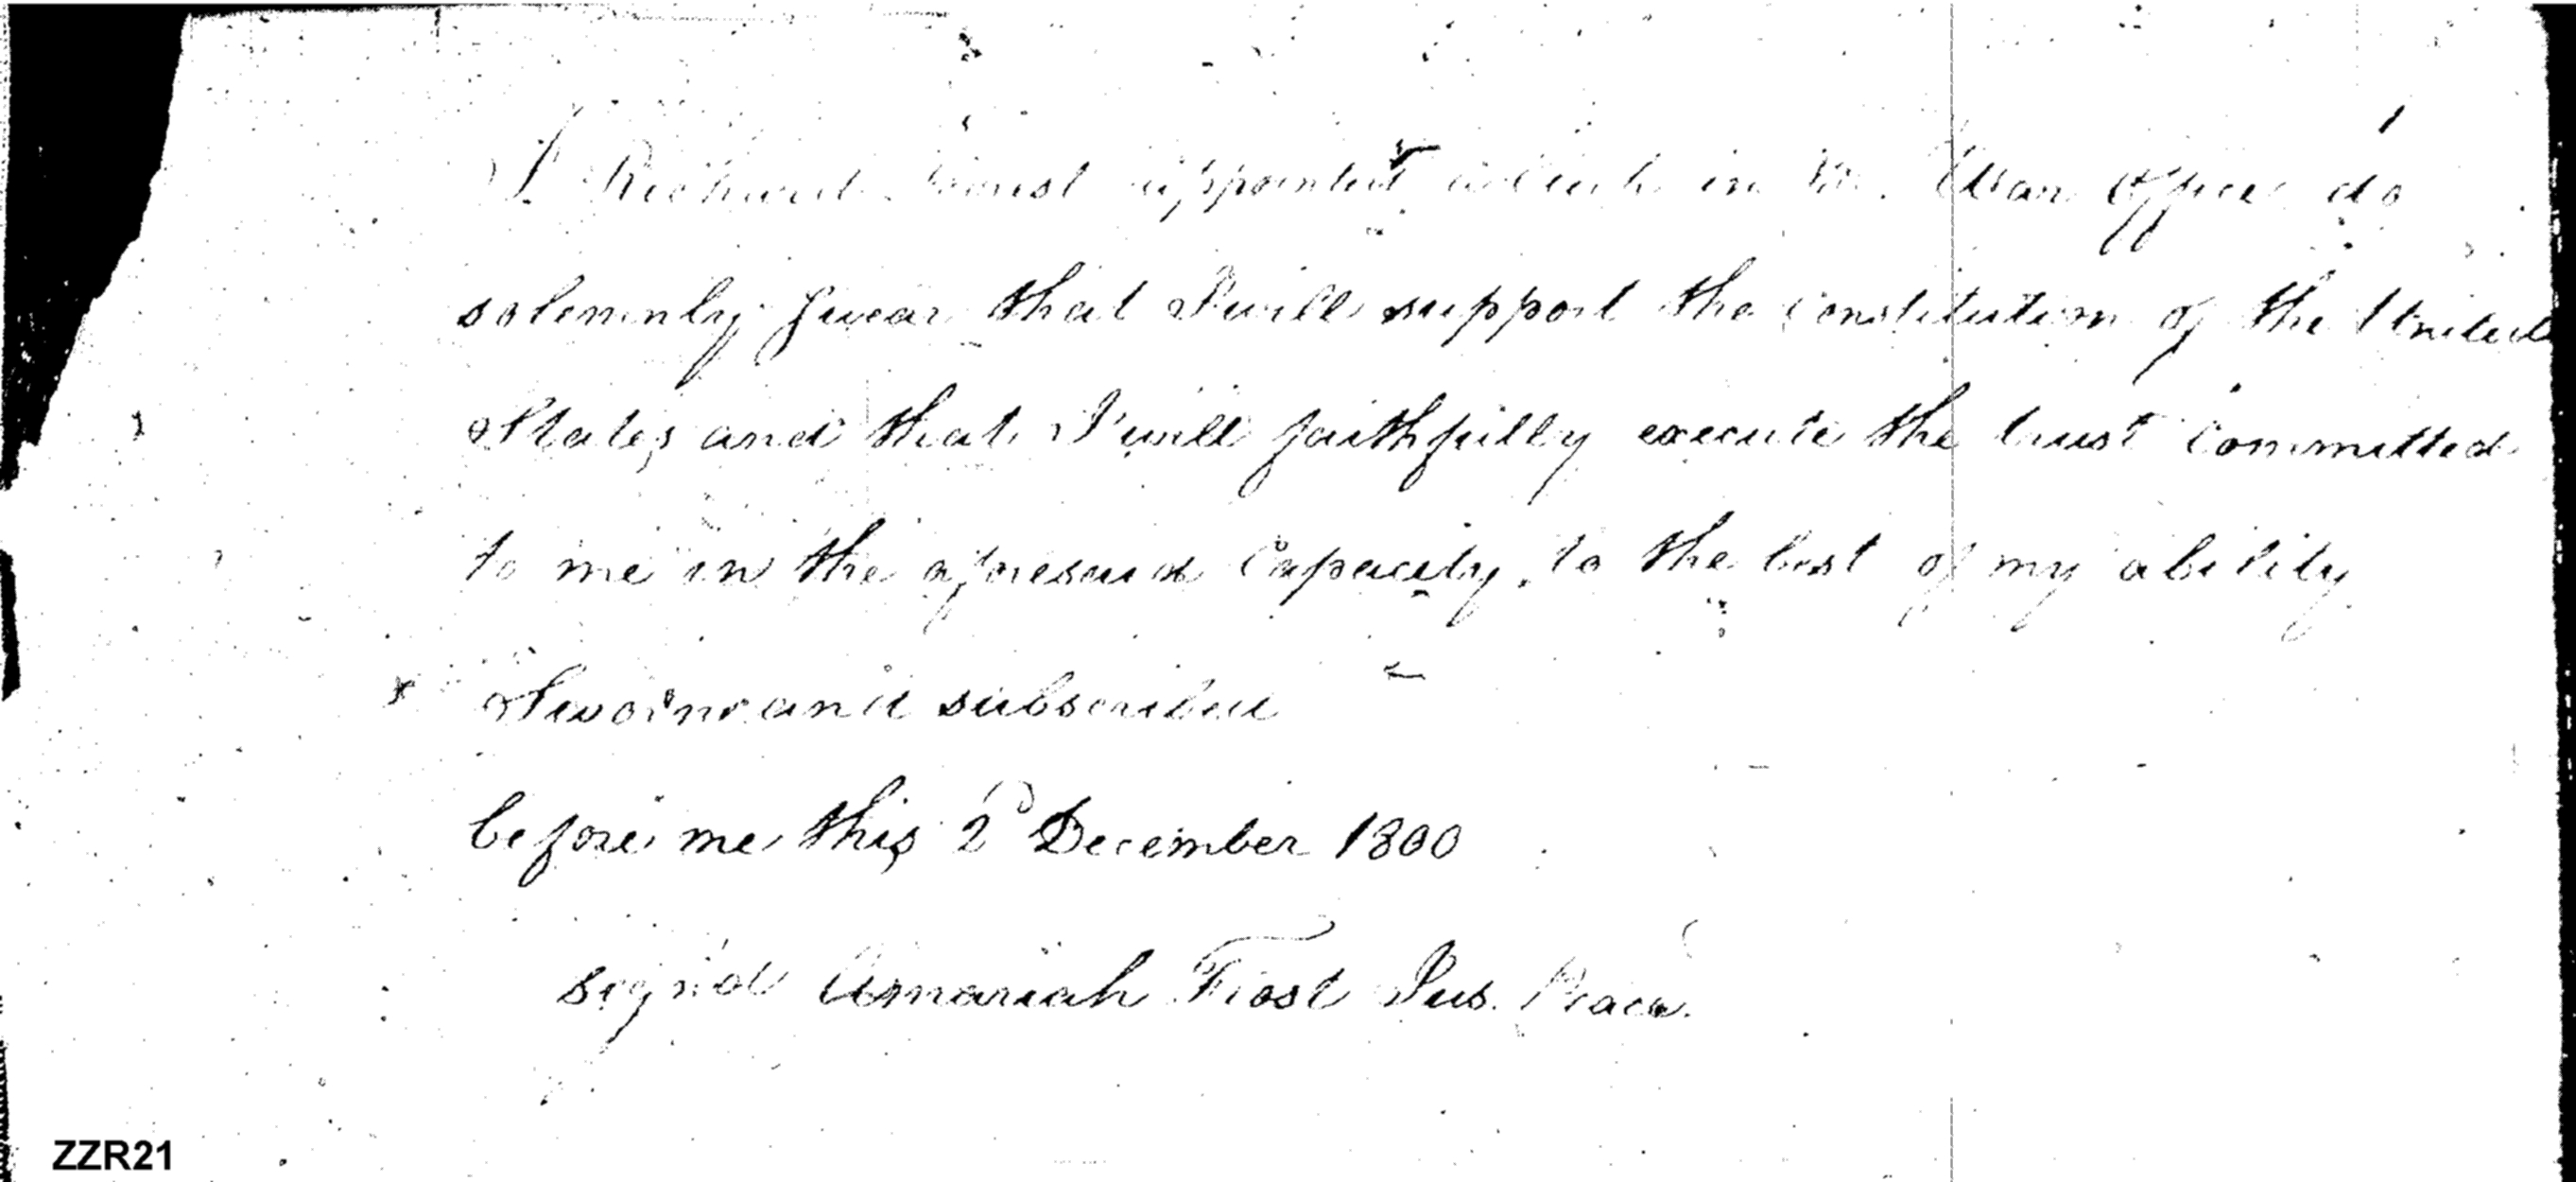 I Richard appointed a Clerk in the War Office do
solemnly swear that I will support the Constitution of the United
States and that I will faithfully execute the trust Committed
to me in the aforesaid Capacity, to the best of my ability
Sworn and subscribed
before me this 2d December 1800
sign'd Amariah Frost Jus. Peace.
ZZR21